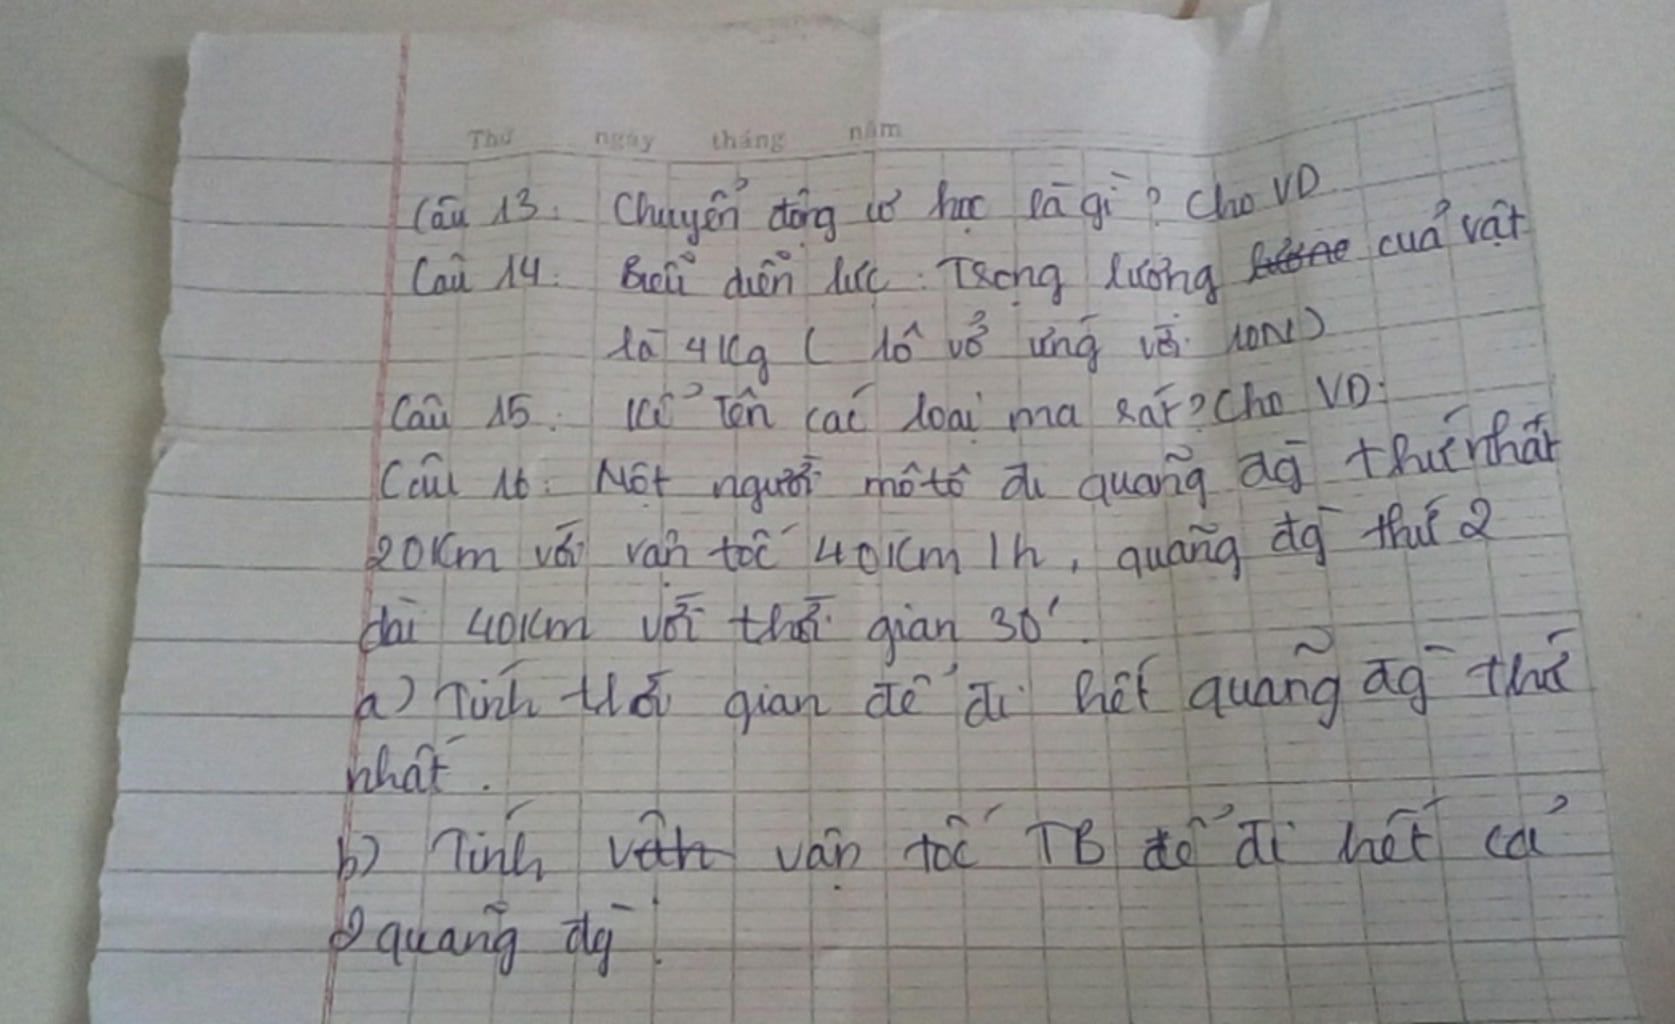 Thứ ngày tháng năm
Câu 13: Chuyển động cơ học là gì? Cho VD
Câu 14: Biểu diễn lực: Trọng lượng của vật
là 4Kg ( 1ô vở ứng với 10N)
Câu 15: Kể tên các loại ma sát? Cho VD:
Câu 16: Một người môtô đi quãng đg thứ nhất
20Km với vận tốc 40Km/h, quãng đg thứ 2
dài 40Km với thời gian 30'.
a) Tính thời gian để đi hết quãng đg thứ
nhất.
b) Tính vận vận tốc TB để đi hết cả
2 quãng đg!